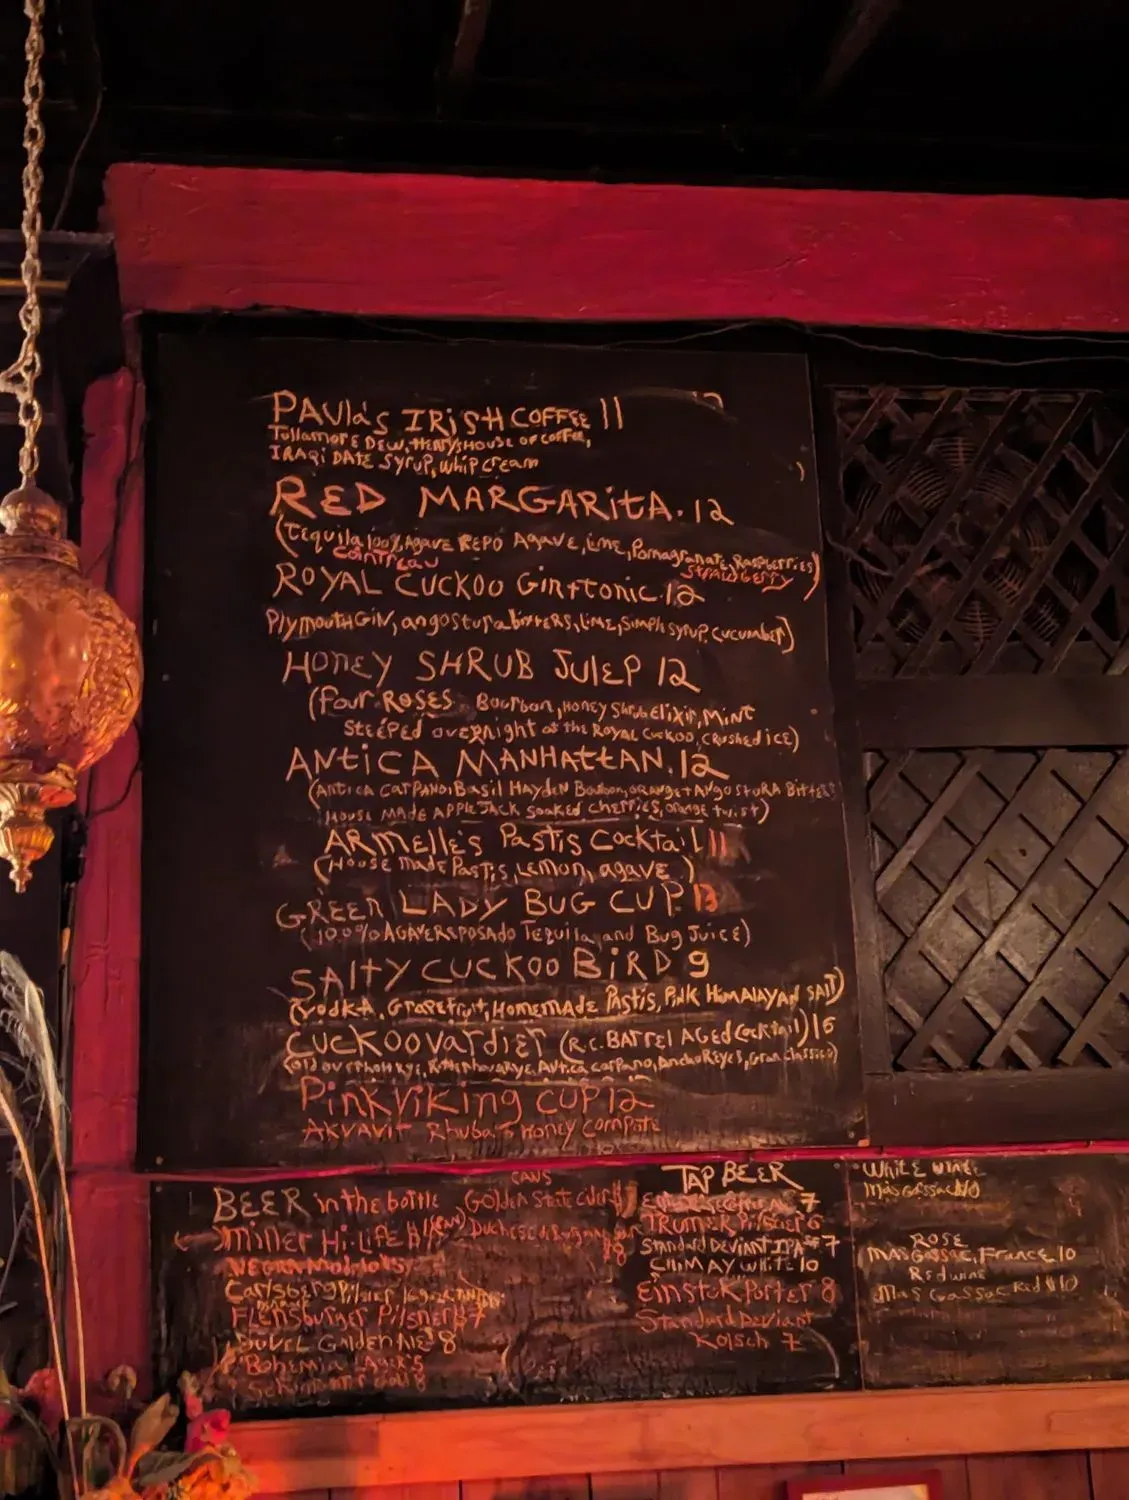 PAula's IRisH COFFEE 11
Tullamore DEW, HENRY'S HOUSE OF COFFEE,
IRAQi DATE SYRUP, WHip CREAM
RED MARGARitA. 12
(Tequila 100% Agave REPO Agave, Lime, Pomagranate, RASPBERRiES)
Cointreau STRAWBERRY
ROYAL CUCKOO Gin+tonic. 12
PlymouthGiN, angostura bitters, lime, Simple syrup, cucumber)
HONEY SHRUB JulEP 12
(Four ROSES Bourbon, Honey Shrub Elixir, MiNt
STEEPED overnight at the Royal Cuckoo, CRUSHED iCE)
ANtiCA MANHAttAN. 12
(ANtiCA CARPANO, Basil Hayden Bourbon, ORANGE + ANgoStURA BittERS
HOUSE MADE APPLE JACK SOAKED CHERRiES, orange twist)
ARMellE's PaStiS CockTail 11
(House made Pastis, Lemon, agave)
GREEN LADY BUG CUP 13
(100% AGAVE REPOSADO TEquila and Bug JuicE)
SALTY CUCKOO BiRD 9
(VODKA, GRAPEFruit, HOMEMADE Pastis, Pink HiMALAYAN SAlT)
CUCKOOVARDiER (R.C. BARREL AGED Cocktail) 15
(OLD OVERHOLT RYE, Antica Carpano, Ancho Reyes, Gran Classico)
PinkViking CUP 12
AKVAViT Rhubarb Honey Compote
CANS
BEER in the bottle
Golden State Cider
Miner Hi-LiFE
Duchesse de Bourgogne
8
NEGRA Modelo
Carlsberg Pilsner
FLENSburger Pilsner 7
DuVEL GoldenAle 8
Bohemia
TAP BEER
7
TRUMER PilsnER 6
Standard DEViANT IPA 7
CHiMAY WHitE 10
Einstok Porter 8
Standard Deviant
Kolsch 7
WHitE WiNE
Mas Gassac 10
ROSE
MAS GASSAC, FRANCE. 10
Red wine
Mas Gassac Red $10